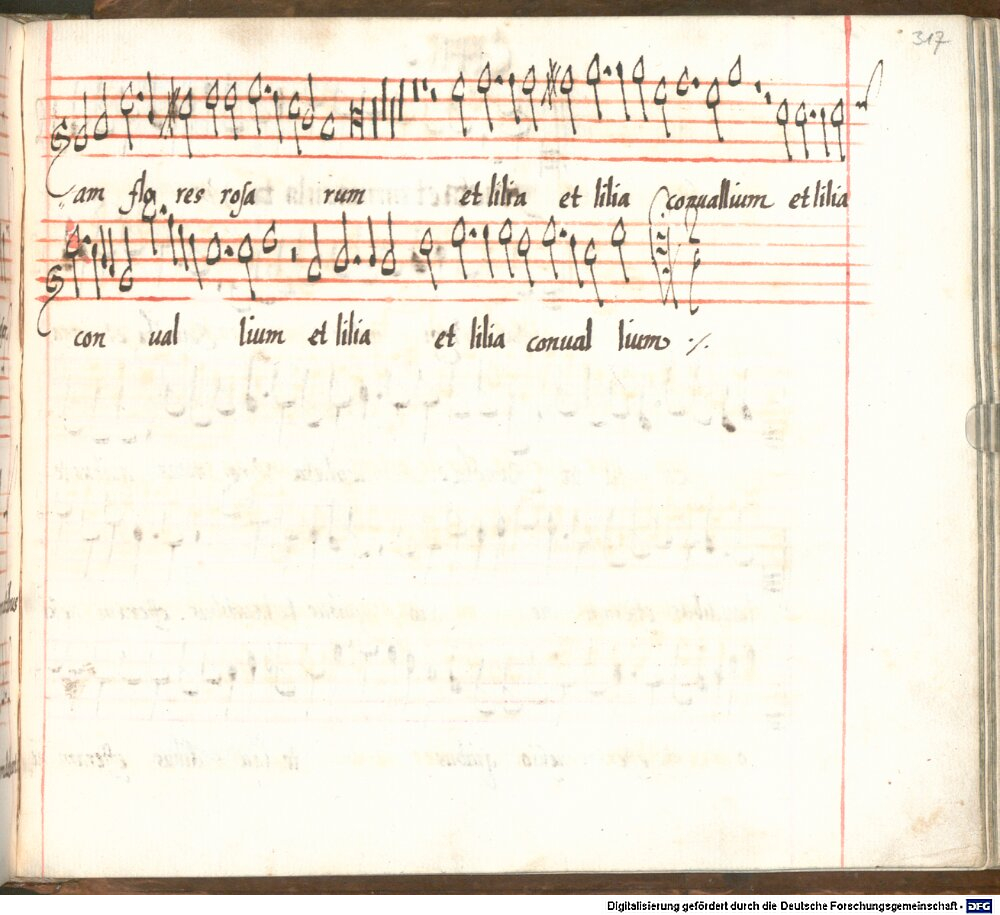 317
am flo res rosa rum et lilia et lilia convallium et lilia
con ual lium et lilia et lilia conual lium ./.
Digitalisierung gefördert durch die Deutsche Forschungsgemeinschaft - DFG